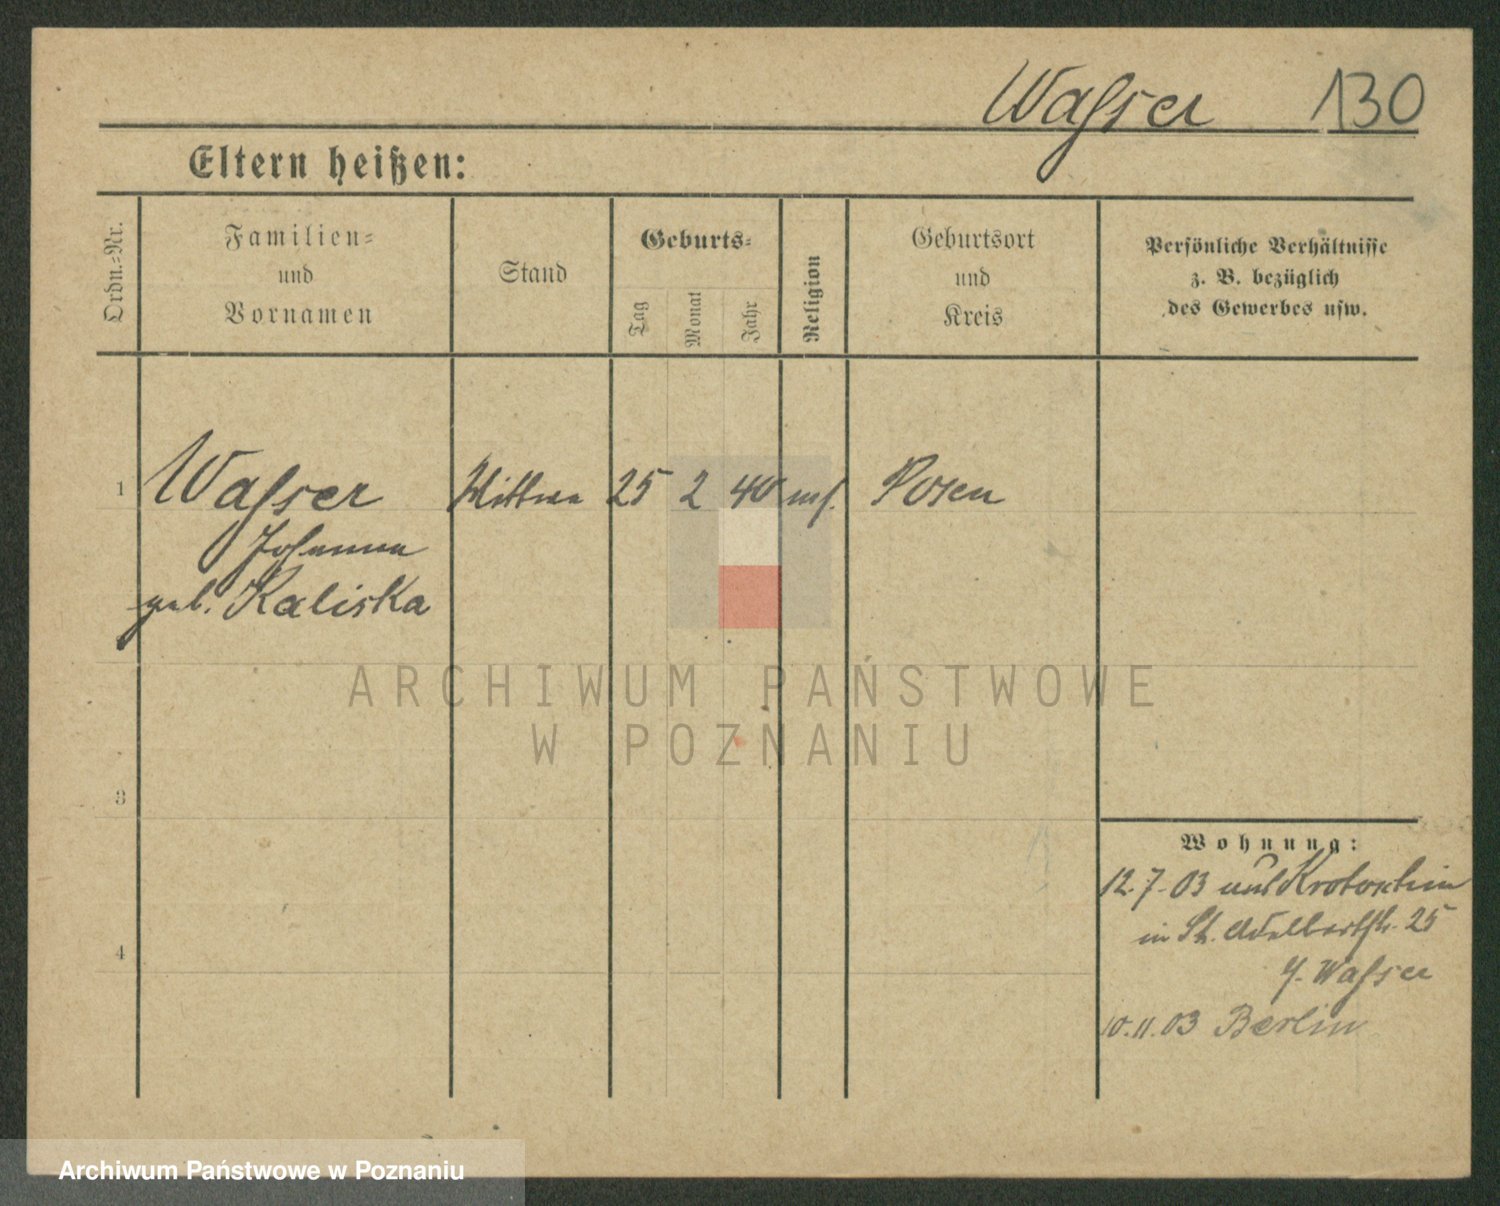 Waſser 130
Eltern heißen:
Ordn.=Nr.
Familien=
und
Vornamen
Stand
Geburts=
Tag
Monat
Jahr
Religion
Geburtsort
und
Kreis
Persönliche Verhältnisse
z. B. bezüglich
des Gewerbes usw.
1 Waſser Wittwe 25 2 40 mſ. Posen
Johanna
geb. Kaliska
ARCHIWUM PAŃSTWOWE
W POZNANIU
3
Wohnung:
12.7.03 aus Krotoschin
in St. Adalbertstr. 25
Waſser
4
10.11.03 Berlin
Archiwum Państwowe w Poznaniu